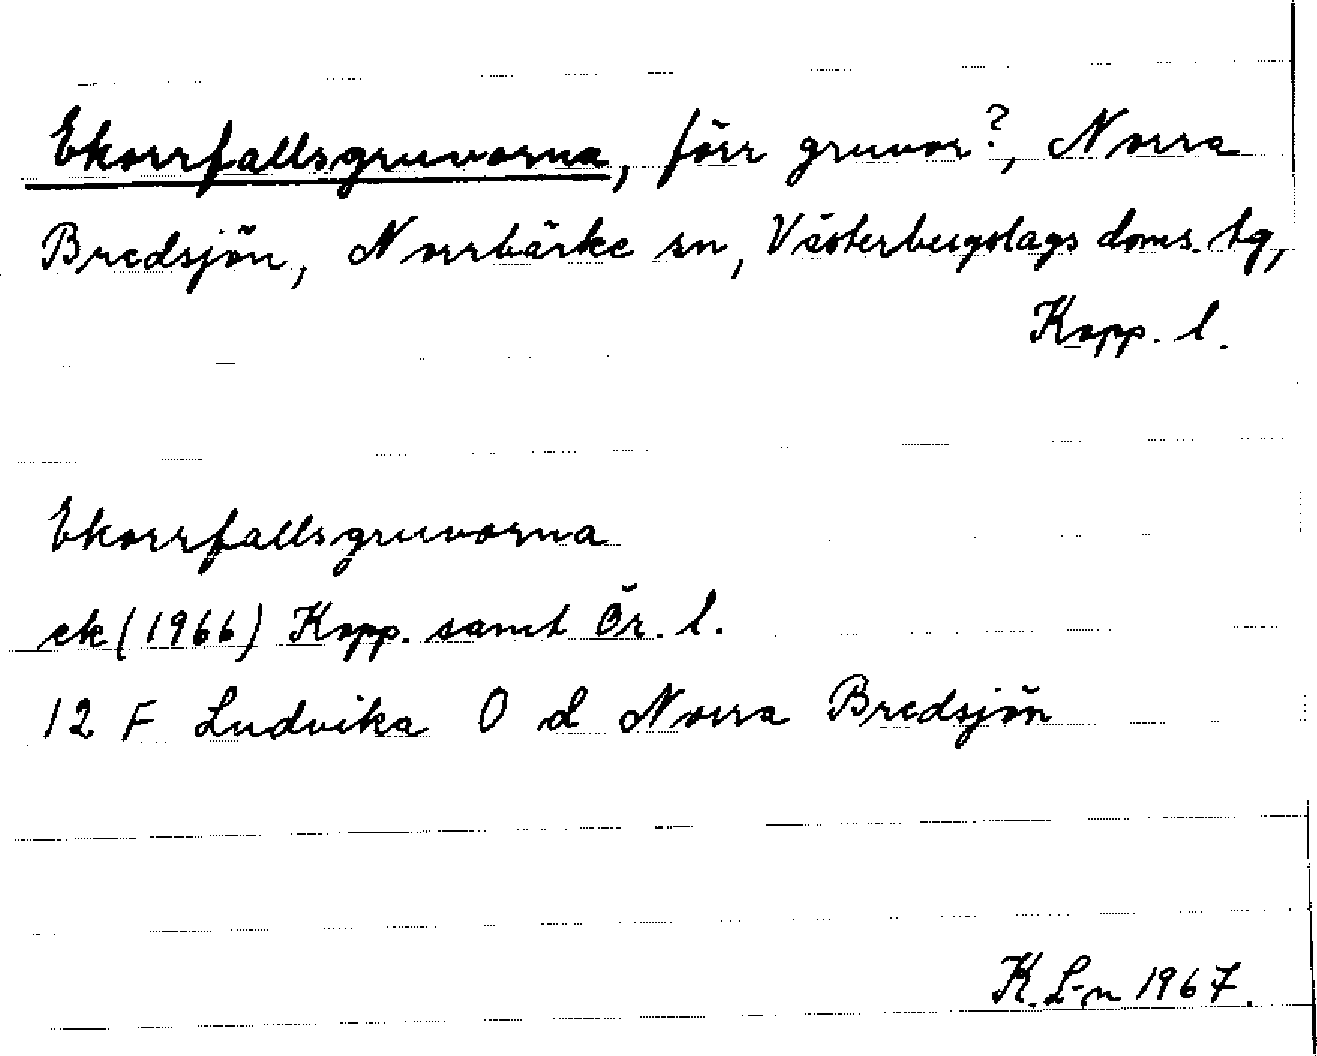 Ekorrfallsgruvorna, förr gruvor?, Norra
Bredsjön, Norrbärke sn, Västerbergslags doms. tg,
Kopp. l.
Ekorrfallsgruvorna
ek (1966) Kopp. samt Ör. l.
12 F Ludvika O d Norra Bredsjön
K. L-n 1967.